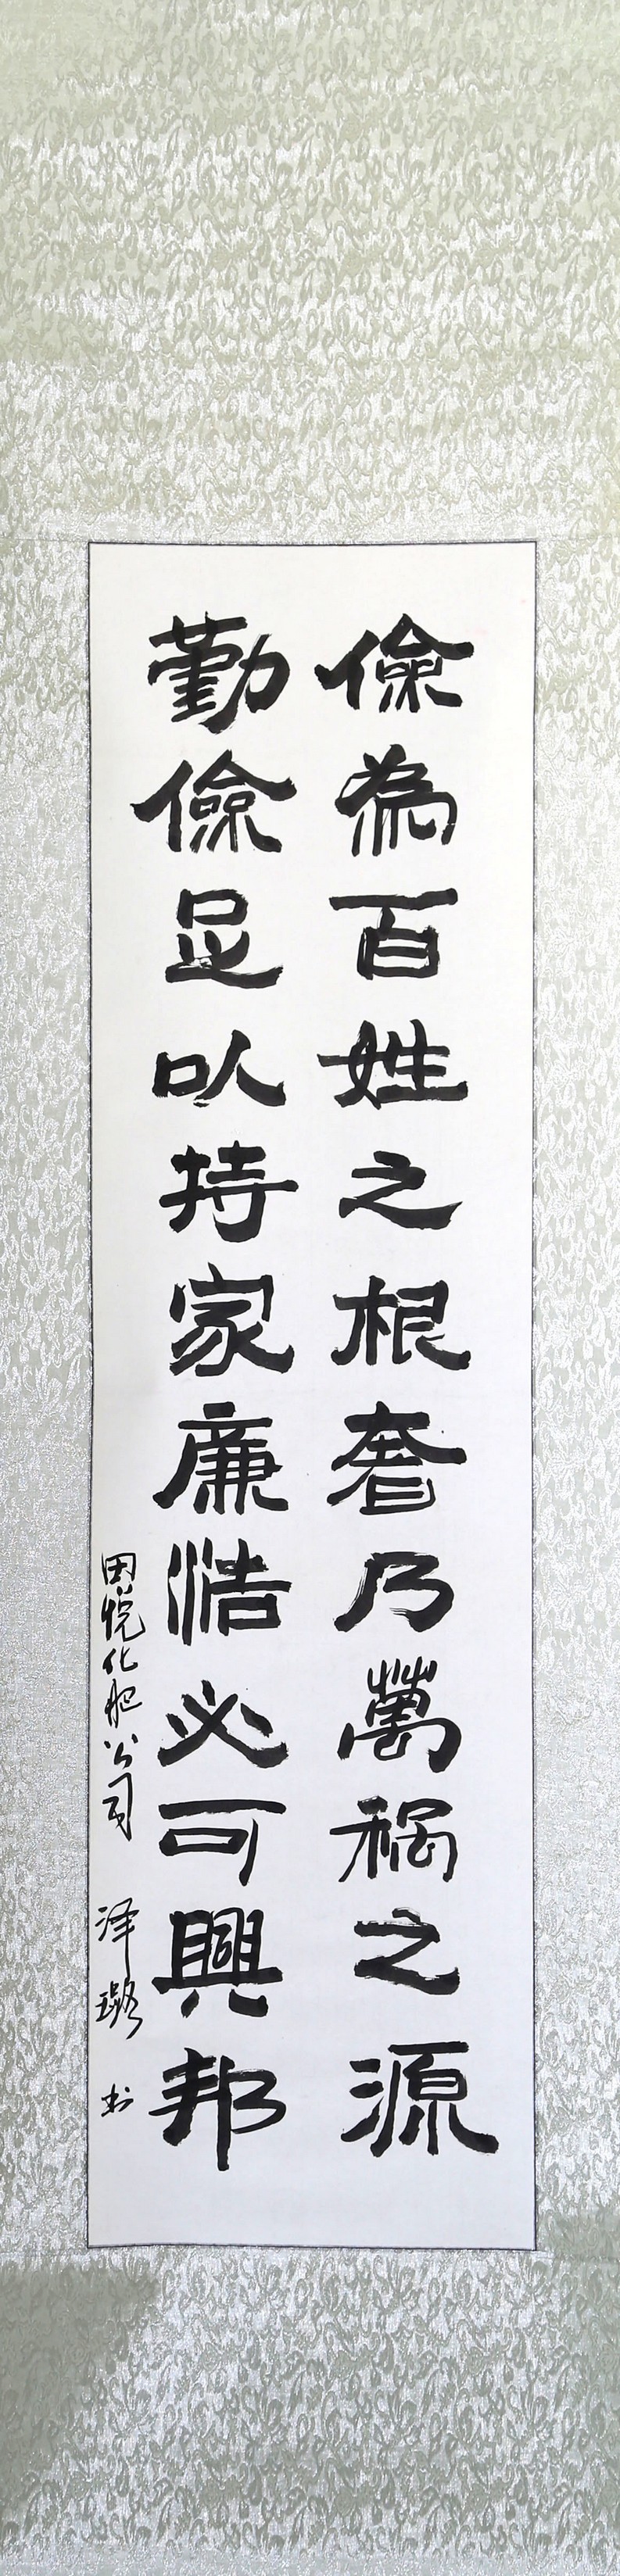 儉為百姓之根奢乃萬禍之源
勤儉足以持家廉洁必可興邦
化肥公司 泽璐 书